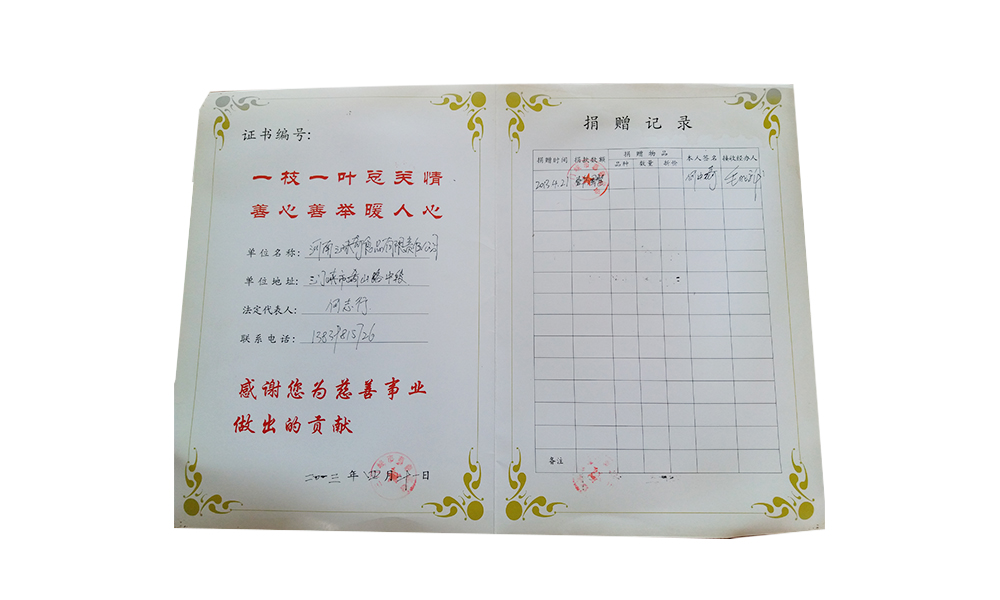 证书编号:
一枝一叶总关情
善心善举暖人心
单位名称: 河南三味奇食品有限责任公司
单位地址: 三门峡市崤山路中段
法定代表人: 何志行
联系电话:
感谢您为慈善事业
做出的贡献
二〇一三年四月二十一日
捐赠记录
捐赠时间 捐款数额 捐赠物品 本人签名 接收经办人
品种 数量 折价
2013.4.21
备注